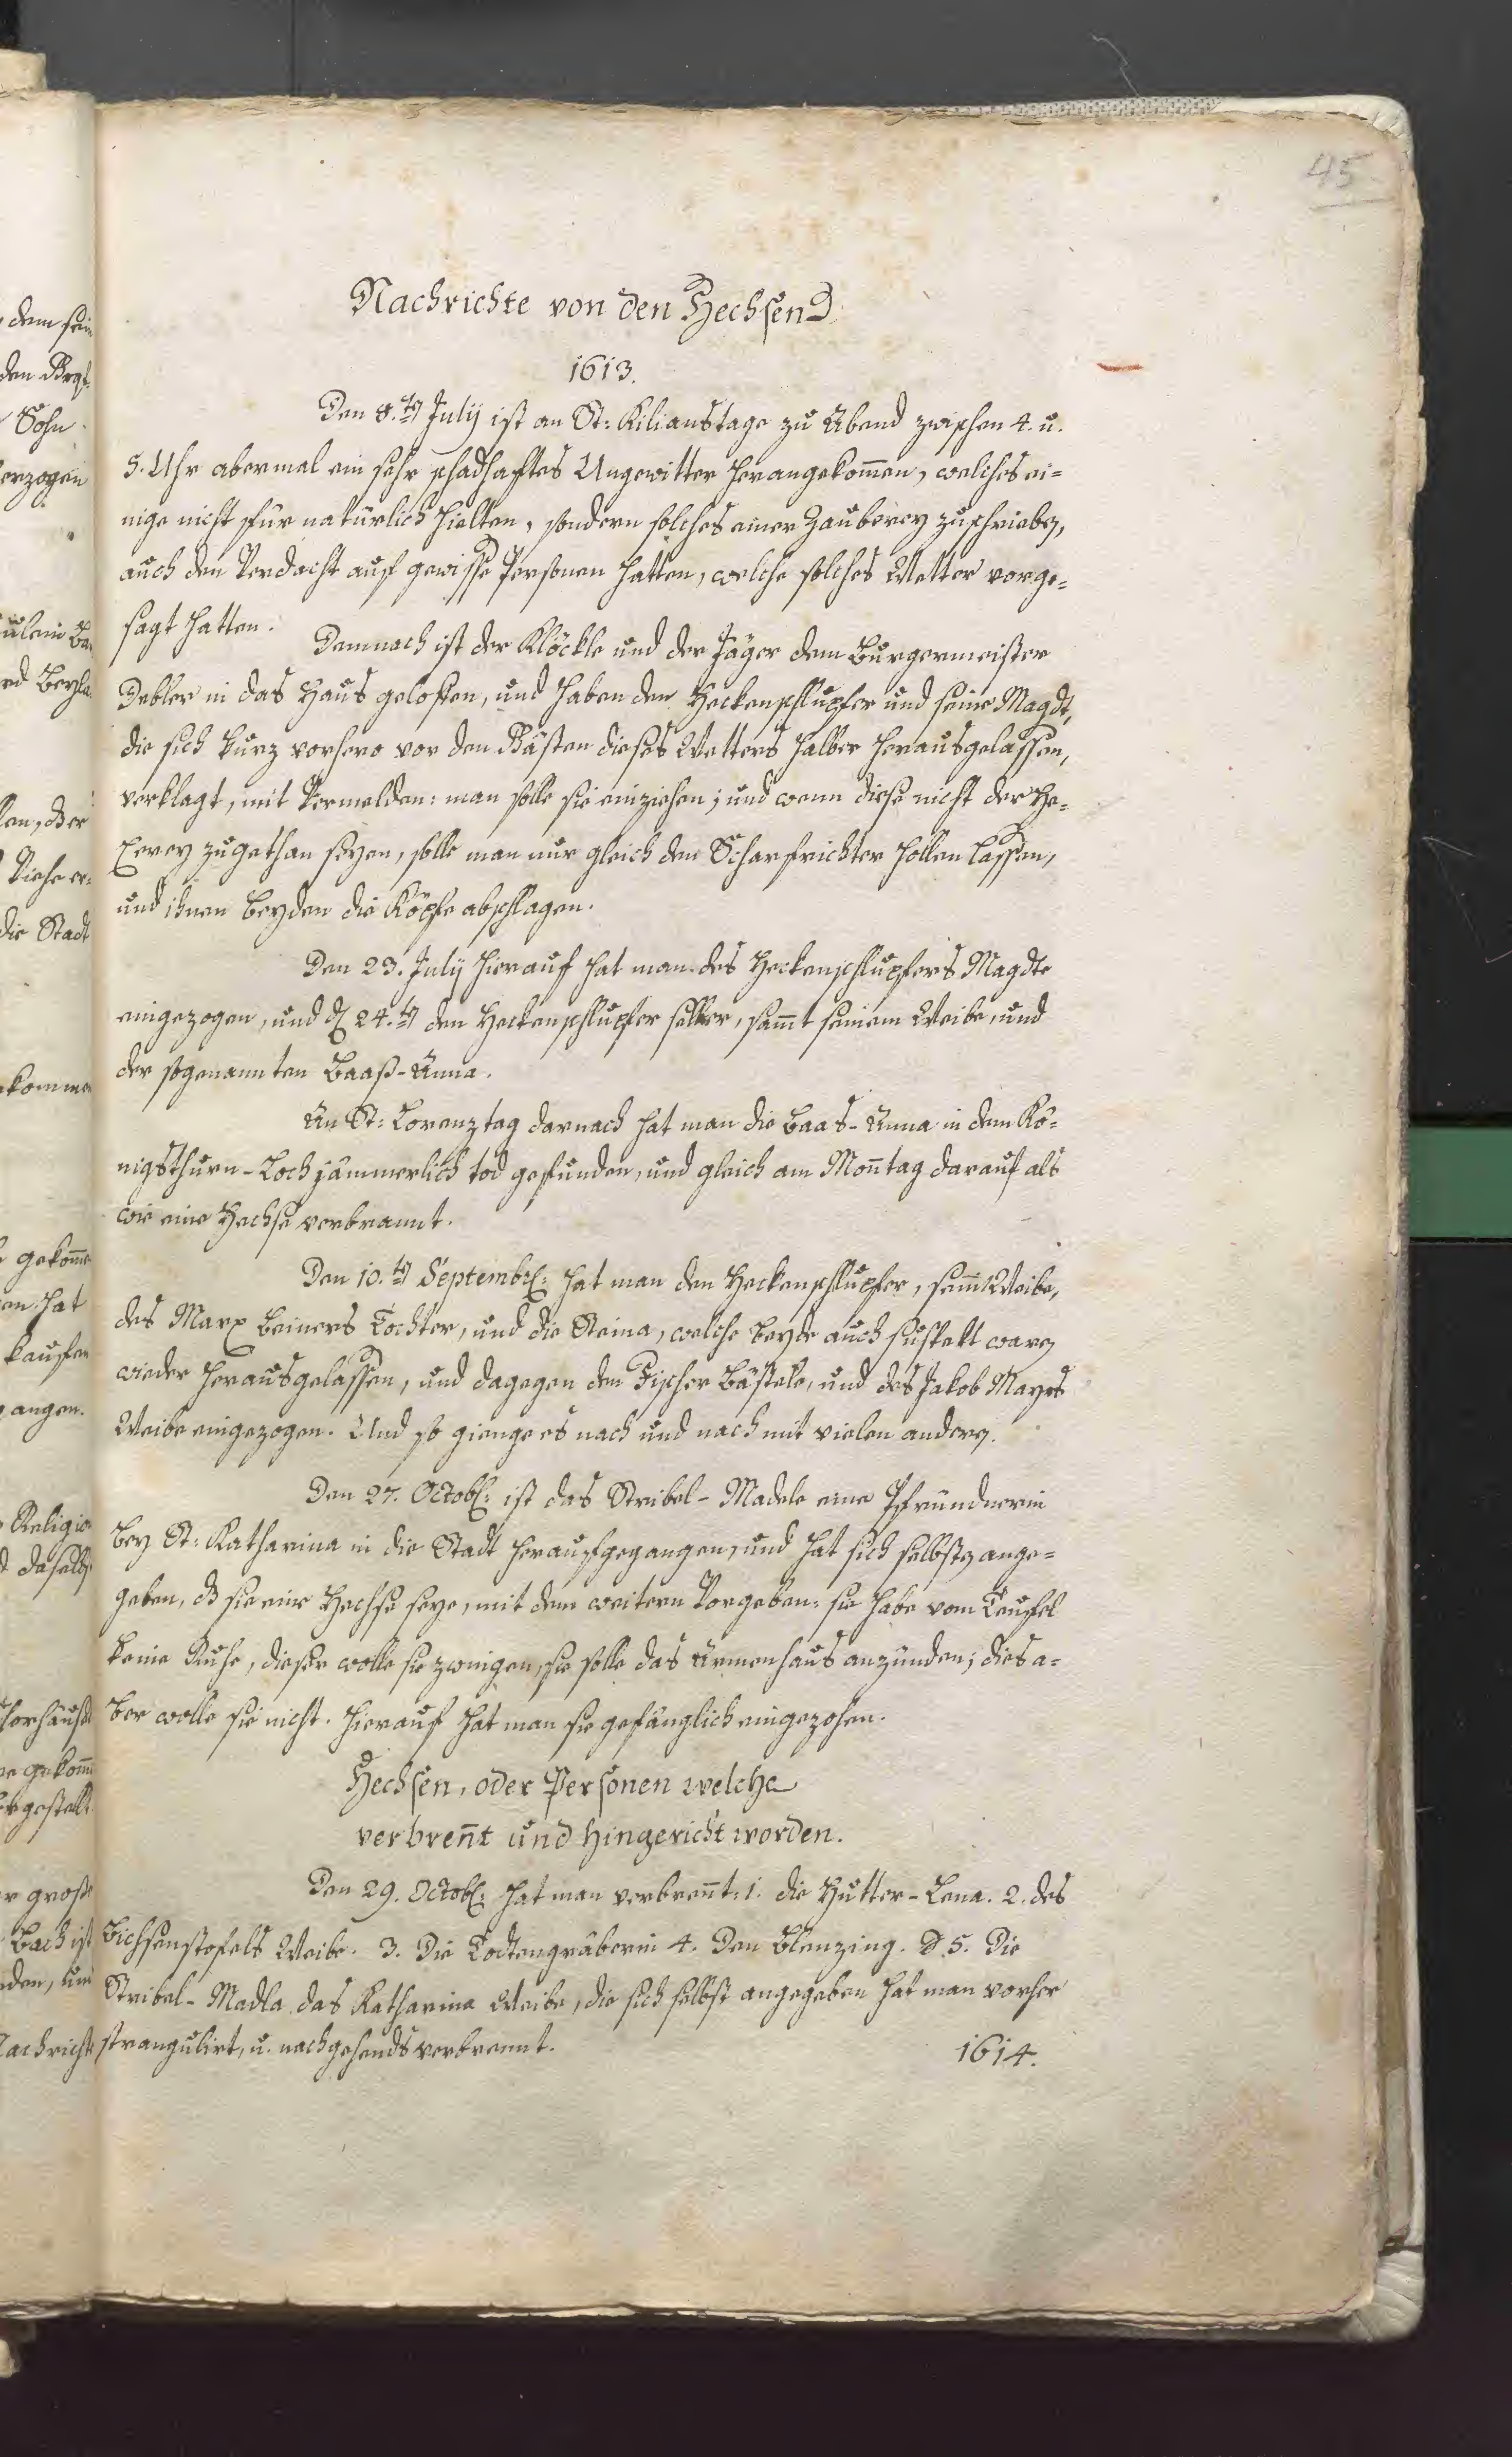 45
Nachrichte von den Hechsen
1613.
Den 8.ten July ist an St: Kilianstage zu Abend zwischen 4. u.
5. Uhr abermal ein sehr schadhaftes Ungewitter herangekom̄en, welches ei-
nige nicht für natürlich hielten, sondern solches einer Zauberey zuschrieben,
auch den Verdacht auf gewisse Personen hatten, welche solches Wetter vorge-
sagt hatten.
Demnach ist der Klöckle und der Jäger dem Burgermeister
Debler in das Haus geloffen, und haben den Heckenschlupfer und seine Magdt,
die sich kurz vorhero vor den Gästen dieses Wetters halber herausgelassen,
verklagt, mit Vermelden: man solle sie einziehen; und wenn diese nicht der He-
xerey zugethan seyen, solle man nur gleich den Scharfrichter hollen lassen,
und ihnen beyden die Köpfe abschlagen.
Den 23. July hierauf hat man des Heckenschlupfers Magdte
eingezogen, und den 24.ten den Heckenschlupfer selber, sam̄t seinem Weibe, und
der sogenannten Baaß-Anna.
An St: Lorenztag darnach hat man die Baas-Anna in dem Kö-
nigsthurn-Loch jämmerlich tod gefunden, und gleich am Mon̄tag darauf als
wie eine Hechse verbrannt.
Den 10.ten Septembr: hat man den Heckenschlupfer, sein Weibe,
des Marx Beiners Tochter, und die Steina, welche beyde auch
wieder herausgelassen, und dagegen den Fischer Bästele, und des Jakob Mayrs
Weibe eingezogen. Und so gienge es nach und nach mit vielen andern.
Den 27. Octob: ist das Stribel-Madele eine Pfründnerin
bey St: Katharina in die Stadt heraufgegangen, und hat sich selbsten ange-
geben, daß sie eine Hechse seye, mit dem weitern Vorgeben: sie habe vom Teufel
keine Ruhe, dieser wolle sie zwingen, sie solle das Armenhaus anzünden; dies a-
ber wolle sie nicht. Hierauf hat man sie gefänglich eingezohen.
Hechsen, oder Personen welche
verbren̄t und hingericht worden.
Den 29. Octob: hat man verbren̄t: 1. die Hutter-Lena. 2. des
Bichsenstofels Weibe. 3. Die Todtengräberin 4. Den Blenzing. 5. Die
Stribel-Madla das Katharina Weibe, die sich selbst angegeben hat man vorher
strangulirt, u. nachgehends verbrennt.
1614.